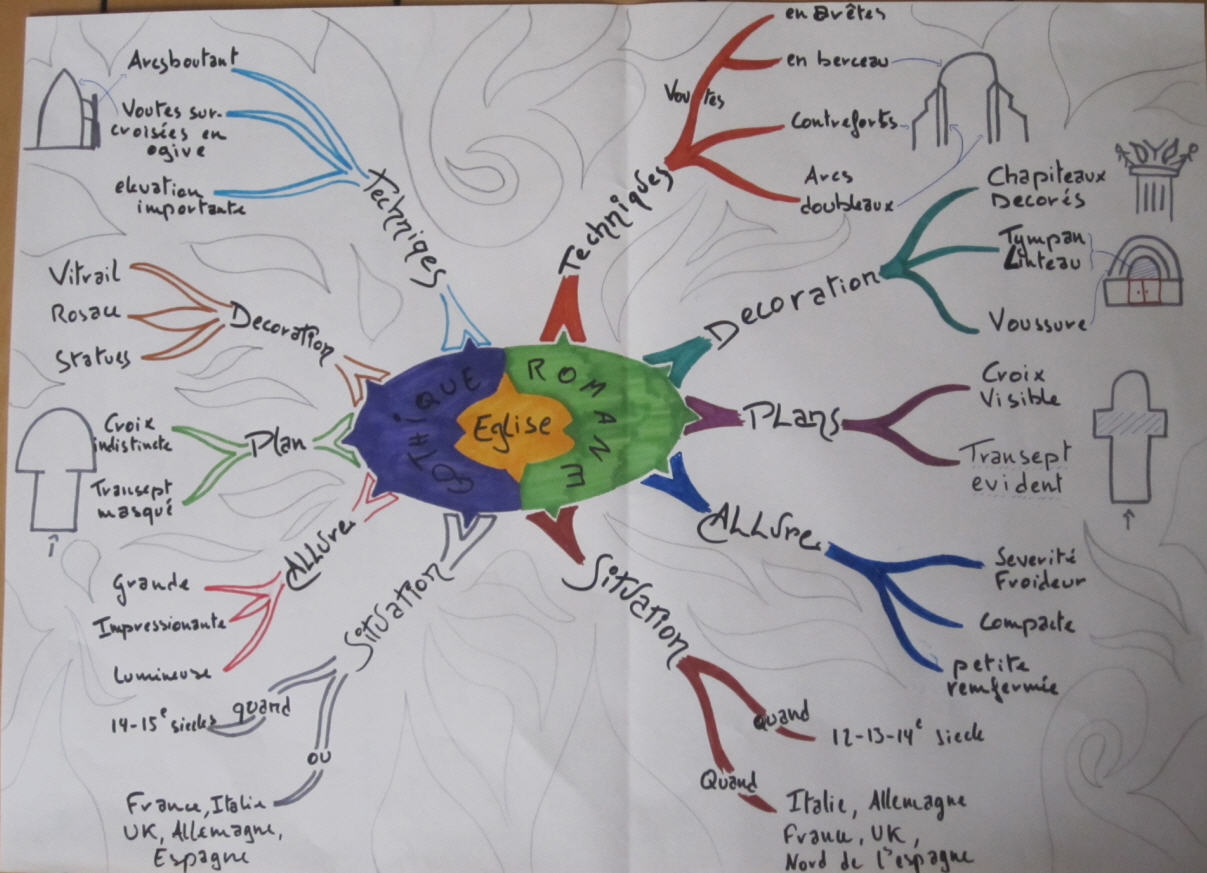 Eglise
GOTHIQUE
ROMANE
Techniqes
Arcsboutant
Voutes sur-
croisées en
ogive
elevation
importante
Decoration
Vitrail
Rosace
Statues
Plan
Croix
indistincte
Transept
masqué
ALLure
Grande
Impressionante
Lumineuse
Situation
quand
14-15e siecles
ou
France, Italie
UK, Allemagne,
Espagne
Techniques
Voutes
en arêtes
en berceau
Contreforts
Arcs
doubleaux
Decoration
Chapiteaux
Decorés
Tympan
Linteau
Voussure
PLans
Croix
Visible
Transept
evident
ALLure
Severité
Froideur
Compacte
petite
remfermée
Situation
Quand
12-13-14e siecle
Quand
Italie, Allemagne
France, UK,
Nord de l'espagne